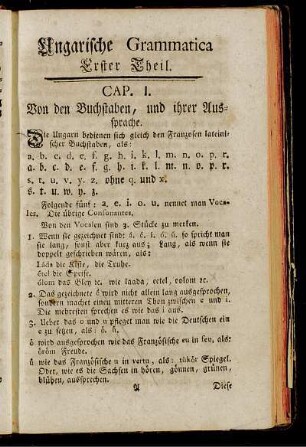 Ungarische Grammatica
Erster Theil.
CAP. I.
Von den Buchstaben, und ihrer Aus-
sprache.
Die Ungarn bedienen sich gleich den Franzosen lateini-
scher Buchstaben, als:
a. b. c. d. e. f. g. h. i. k. l. m. n. o. p. r.
a. b. c. d. e. f. g. h. i. k. l. m. n. o. p. r.
s. t. u. v. y. z. ohne q. und x.
s. t. u. w. y. z.
Folgende fünf: a. e. i. o. u. nennet man Voca-
les. Die übrige Consonantes.
Von den Vocalen sind 3. Stücke zu merken.
1. Wenn sie gezeichnet sind: á. é. í. ó. ú. so spricht man
sie lang, sonst aber kurz aus; Lang, als wenn sie
doppelt geschrieben wären, als:
Láda die Kiste, die Truhe.
étel die Speise.
ólom das Bley ic. wie laada, eetel, oolom ic.
2. Das gezeichnete é wird nicht allein lang ausgesprochen,
sondern machet einen mitteren Thon zwischen e und i.
Die mehresten sprechen es wie das i aus.
3. Ueber das o und u pfleget man wie die Deutschen ein
e zu setzen, als: ö, ü,
ö wird ausgesprochen wie das Französische eu in feu, als:
öröm Freude.
ü wie das Französische u in vertu, als: tükör Spiegel.
Oder, wie es die Sachsen in hören, gönnen, grünen,
blühen, aussprechen.
A Diese